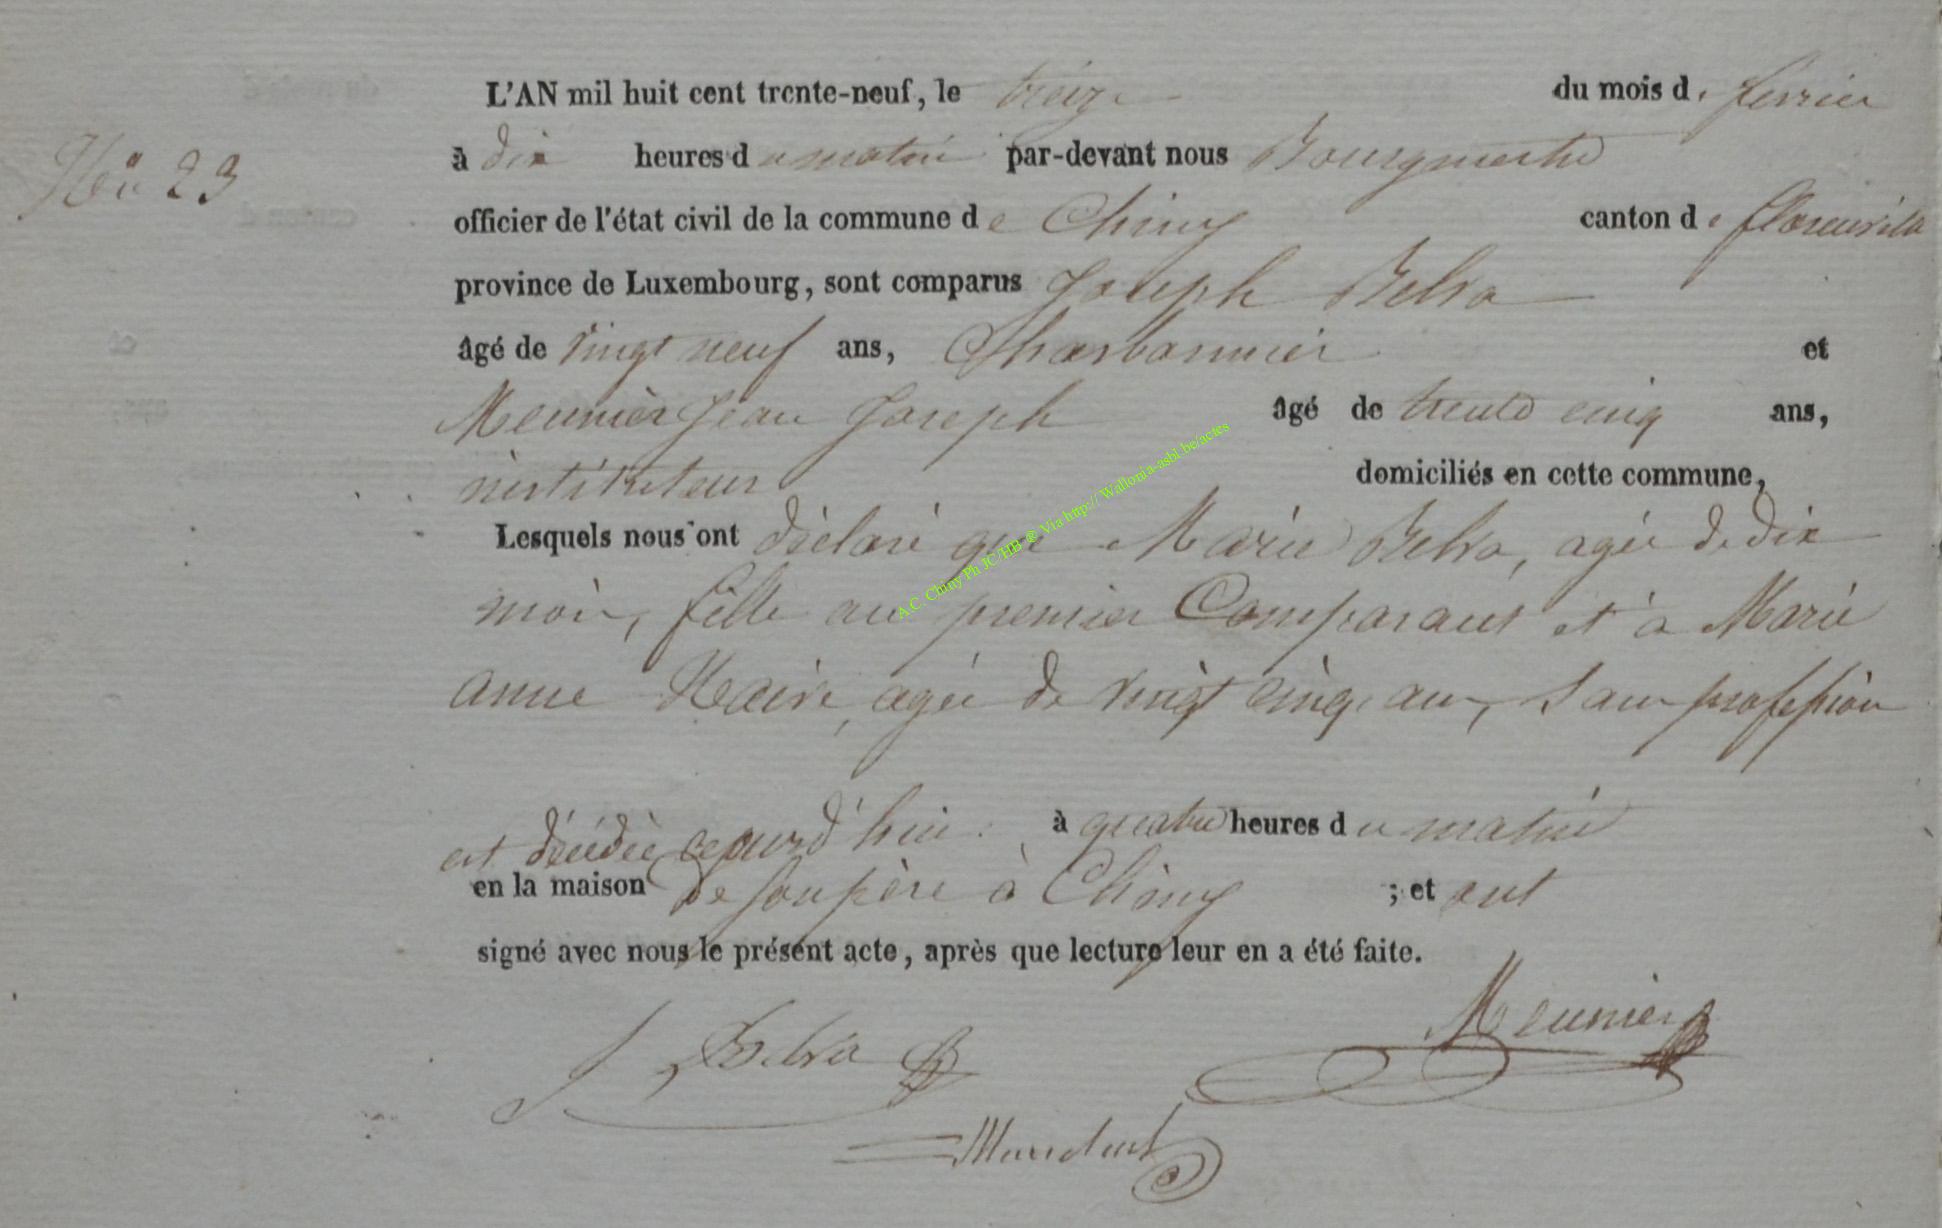 L'AN mil huit cent trente-neuf, le treize du mois de fevrier
à dix heures du matin par-devant nous Bourgmestre
23
officier de l'état civil de la commune de Chiny canton de florenville
province de Luxembourg, sont comparus Joseph Belva
âgé de vingt neuf ans, Charbonnier et
Meunier Jean Joseph âgé de trente cinq ans,
instituteur domiciliés en cette commune,
Lesquels nous ont déclaré que Marie Belva, agée de dix
mois, fille au premier Comparant et à Marie
anne agée de vingt cinq ans, sans profession
est décédée cejourd'hui à quatre heures du matin
en la maison de son père à Chiny ; et ont
signé avec nous le présent acte, après que lecture leur en a été faite.
J Belva
Meunier
A.C. Chiny Ph JC/HB ® Via http:// Wallonia-asbl.be/actes